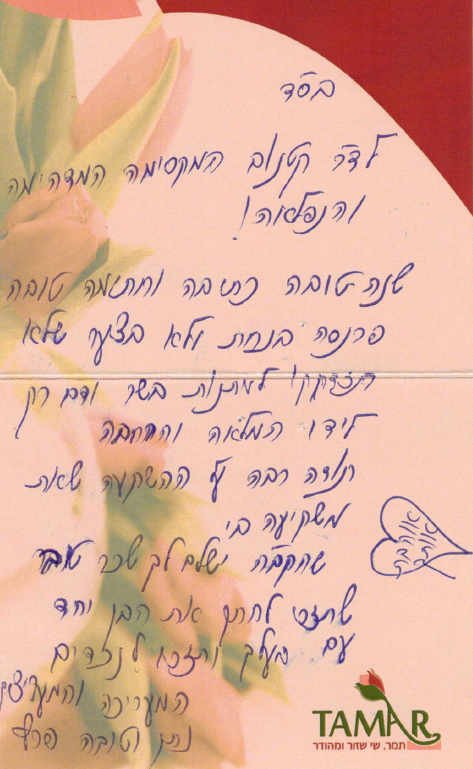 בס"ד
לד"ר קטנוב המקסימה המדהימה
והנפלאה!
שנה טובה כתיבה וחתימה טובה
פרנסה בנחת ולא בצער שלא
תצדקקו למתנות בשר ודם רק
לידו המלאה והרחבה
תודה רבה על ההשקעה שאת
משקיעה בי
שהקב"ה ישלם לך שכר טוב
שתזכו לחתן את הבן יחד
עם בעלך ותזכו לנכדים
המעריכה והמעריצה
נתן וטובה
אוהבת
אותך
TAMAR
תמר. שי שזור ומהודר